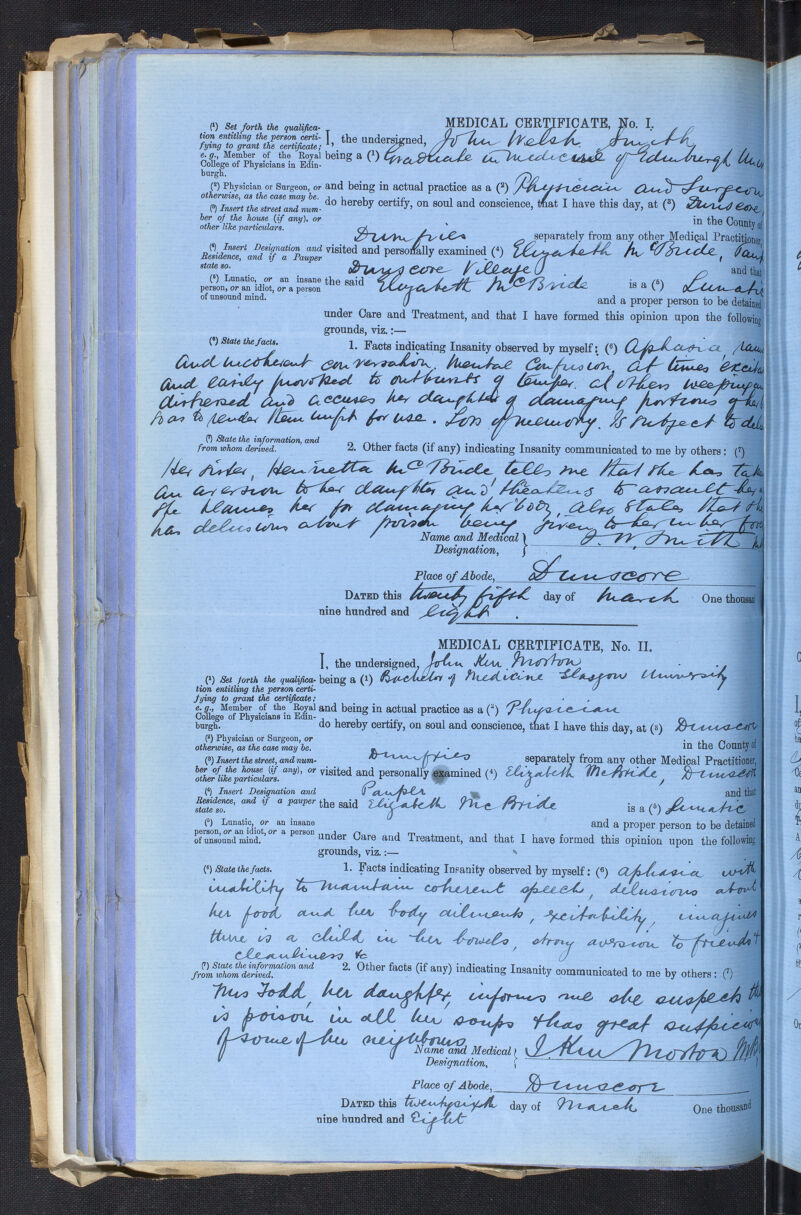 MEDICAL CERTIFICATE, No. I.
(¹) Set forth the qualifica-
tion entitling the person certi-
fying to grant the certificate;
e. g., Member of the Royal
College of Physicians in Edin-
burgh.
I, the undersigned, John Welsh Smyth
being a (¹) Graduate in Medicine of Edinburgh
(²) Physician or Surgeon, or
otherwise, as the case may be.
and being in actual practice as a (²) Physician and Surgeon
(³) Insert the street and num-
ber of the house (if any), or
other like particulars.
do hereby certify, on soul and conscience, that I have this day, at (³) Dunscore,
in the County of
Dumfries separately from any other Medical Practitioner,
(⁴) Insert Designation and
Residence, and if a Pauper
state so.
visited and personally examined (⁴) Elizabeth McBride,
Dunscore Village and that
(⁵) Lunatic, or an insane
person, or an idiot, or a person
of unsound mind.
the said Elizabeth McBride is a (⁵) Lunatic
and a proper person to be detained
under Care and Treatment, and that I have formed this opinion upon the following
grounds, viz. :—
(⁶) State the facts.
1. Facts indicating Insanity observed by myself: (⁶) Aphasia,
and incoherent conversation. Mental Confusion, at times
and easily provoked to outbursts of temper. at others weeping
distressed and accuses her daughter of damaging portions of her
so as to render them unfit for use. Loss of memory. Is subject to
(⁷) State the information, and
from whom derived.
2. Other facts (if any) indicating Insanity communicated to me by others: (⁷)
Her sister, Henrietta McBride tells me that she has
an aversion to her daughter and threatens to assault her
She blames her for damaging her body, also states that
has delusions about poison being given to her in her
Name and Medical
Designation,
J. W. Smith
Place of Abode, Dunscore
DATED this twenty fifth day of March One thousand
nine hundred and eight.
MEDICAL CERTIFICATE, No. II.
I, the undersigned, John Kerr Morton
(¹) Set forth the qualifica-
tion entitling the person certi-
fying to grant the certificate;
e. g., Member of the Royal
College of Physicians in Edin-
burgh.
being a (¹) Bachelor of Medicine Glasgow University
and being in actual practice as a (²) Physician
(²) Physician or Surgeon, or
otherwise, as the case may be.
do hereby certify, on soul and conscience, that I have this day, at (³) Dunscore
in the County of
(³) Insert the street, and num-
ber of the house (if any), or
other like particulars.
Dumfries separately from any other Medical Practitioner,
visited and personally examined (⁴) Elizabeth McBride, Dunscore
(⁴) Insert Designation and
Residence, and if a pauper
state so.
Pauper and that
the said Elizabeth McBride is a (⁵) Lunatic
(⁵) Lunatic, or an insane
person, or an idiot, or a person
of unsound mind.
and a proper person to be detained
under Care and Treatment, and that I have formed this opinion upon the following
grounds, viz. :—
(⁶) State the facts.
1. Facts indicating Insanity observed by myself: (⁶) aphasia with
inability to maintain coherent speech, delusions about
her food and her body ailments, excitability, imagines
there is a child in her bowels, strong aversion to friends &
cleanliness &c
(⁷) State the information and
from whom derived.
2. Other facts (if any) indicating Insanity communicated to me by others: (⁷)
Mrs Todd, her daughter, informs me she suspects
is poison in all her soups & has great suspicion
of some of her neighbours
Name and Medical
Designation,
J. Kerr Morton
Place of Abode, Dunscore
DATED this twentysixth day of March One thousand
nine hundred and Eight